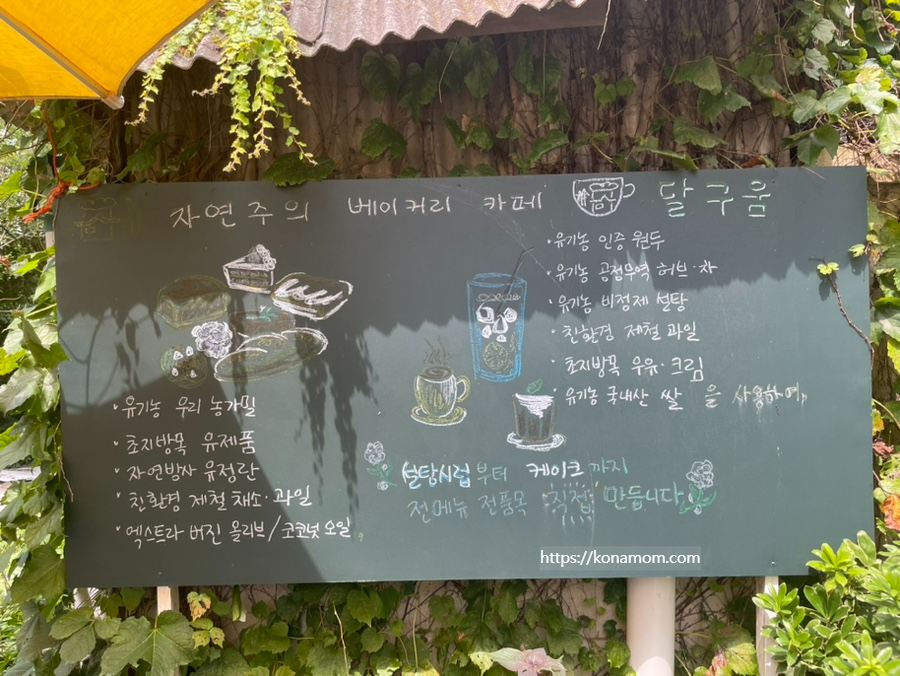 자연주의 베이커리 카페 달구움
· 유기농 우리 농가밀
· 초지방목 유제품
· 자연방사 유정란
· 친환경 제철 채소 · 과일
· 엑스트라 버진 올리브 / 코코넛 오일
· 유기농 인증 원두
· 유기농 공정무역 허브 · 차
· 유기농 비정제 설탕
· 친환경 제철 과일
· 초지방목 우유 · 크림
· 유기농 국내산 쌀 을 사용하여,
설탕시럽부터 케이크까지
전메뉴 전품목 직접 만듭니다
https://konamom.com